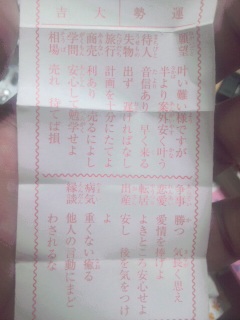 運勢大吉
願望 叶い難い様ですが
半より案外安く叶う
待人 音信あり 早く来る
失物 出ず 遅ければなし
旅行 計画を十分にたてよ
商売 利あり 売るによし
学問 安心して勉学せよ
相場 売れ 待てば損
争事 勝つ 気長く思え
恋愛 愛情を捧げよ
転居 よきところ安心せよ
出産 安し 後に気をつけ
よ
病気 重くない癒る
縁談 他人の言動にまど
わされるな